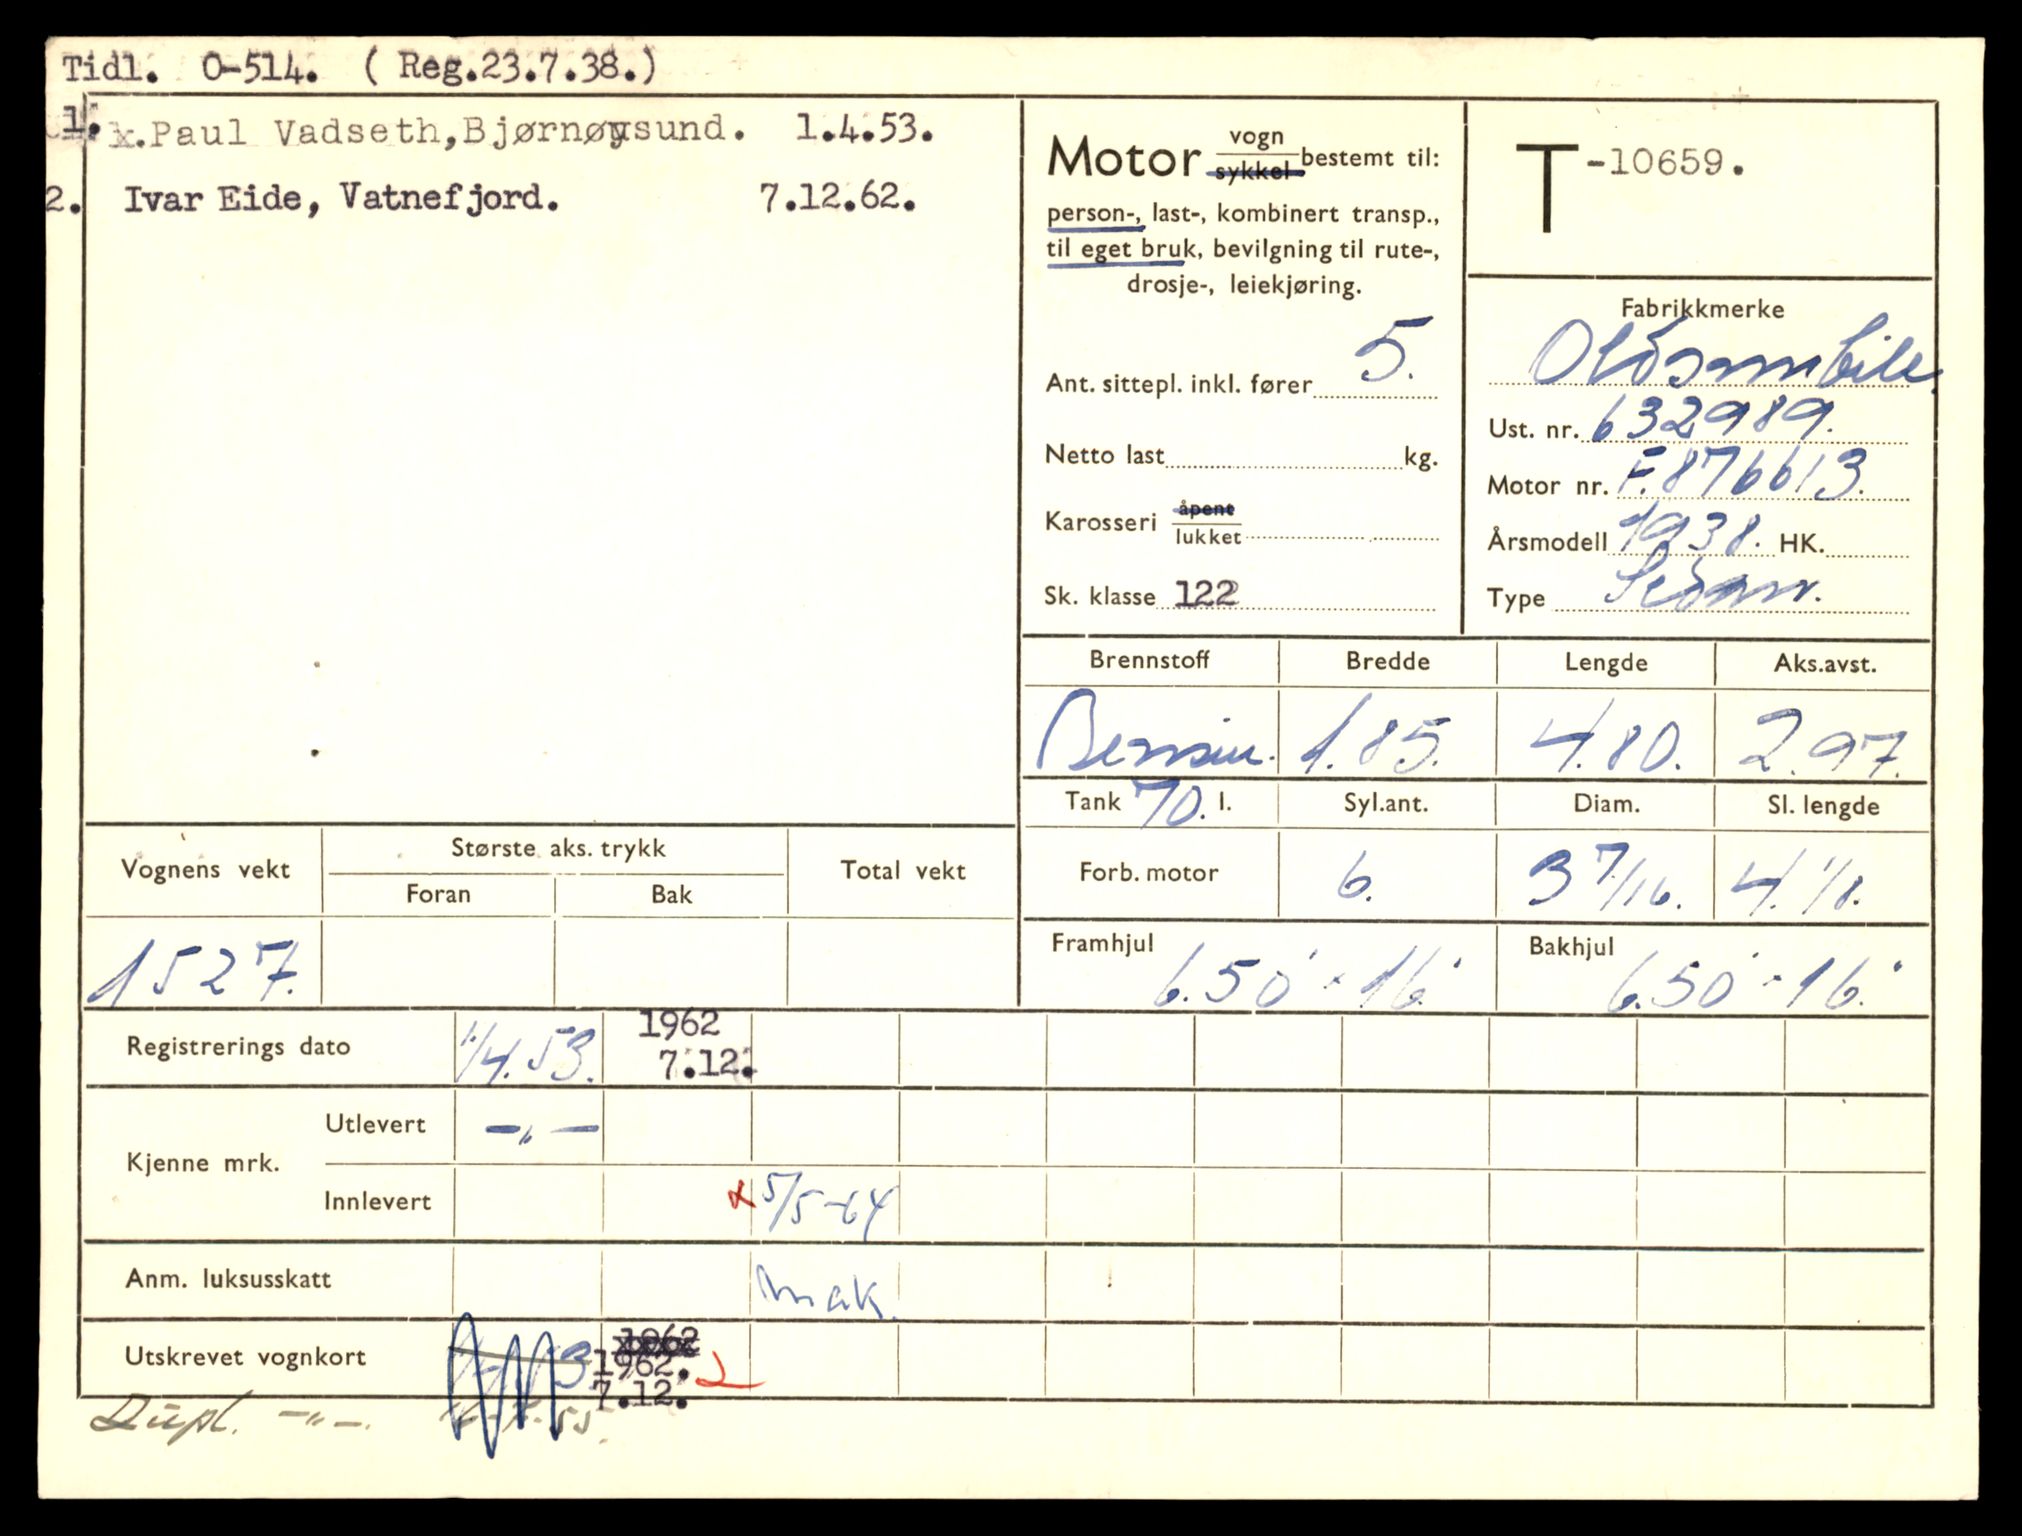 Tidl. O-514. ( Reg.23.7.38.)
1. x.Paul Vadseth,Bjørnøysund. 1.4.53.
2. Ivar Eide, Vatnefjord. 7.12.62.
Motor vogn sykkel bestemt til:
person-, last-, kombinert transp.,
til eget bruk, bevilgning til rute-,
drosje-, leiekjøring.
Ant. sittepl. inkl. fører 5.
Netto last kg.
Karosseri åpent lukket
Sk. klasse 122
T-10659.
Fabrikkmerke
Oldsmobile
Ust. nr. 632989.
Motor nr. F.876613.
Årsmodell 1938. HK.
Type Sedan.
Brennstoff Bredde Lengde Aks.avst.
Bensin. 1.85. 4.80. 2.97.
Tank 70. l. Syl.ant. Diam. Sl. lengde
Forb. motor 6. 3 7/16. 4. 1/8.
Framhjul 6.50 - 16" Bakhjul 6.50 - 16"
Vognens vekt Største aks. trykk Total vekt
Foran Bak
1527.
Registrerings dato 1/4.53. 1962 7.12.
Kjenne mrk. Utlevert -"-
Innlevert x 5/5-64
Anm. luksusskatt mak.
Utskrevet vognkort 1962 1962. 7.12.
Dupl. -"-.